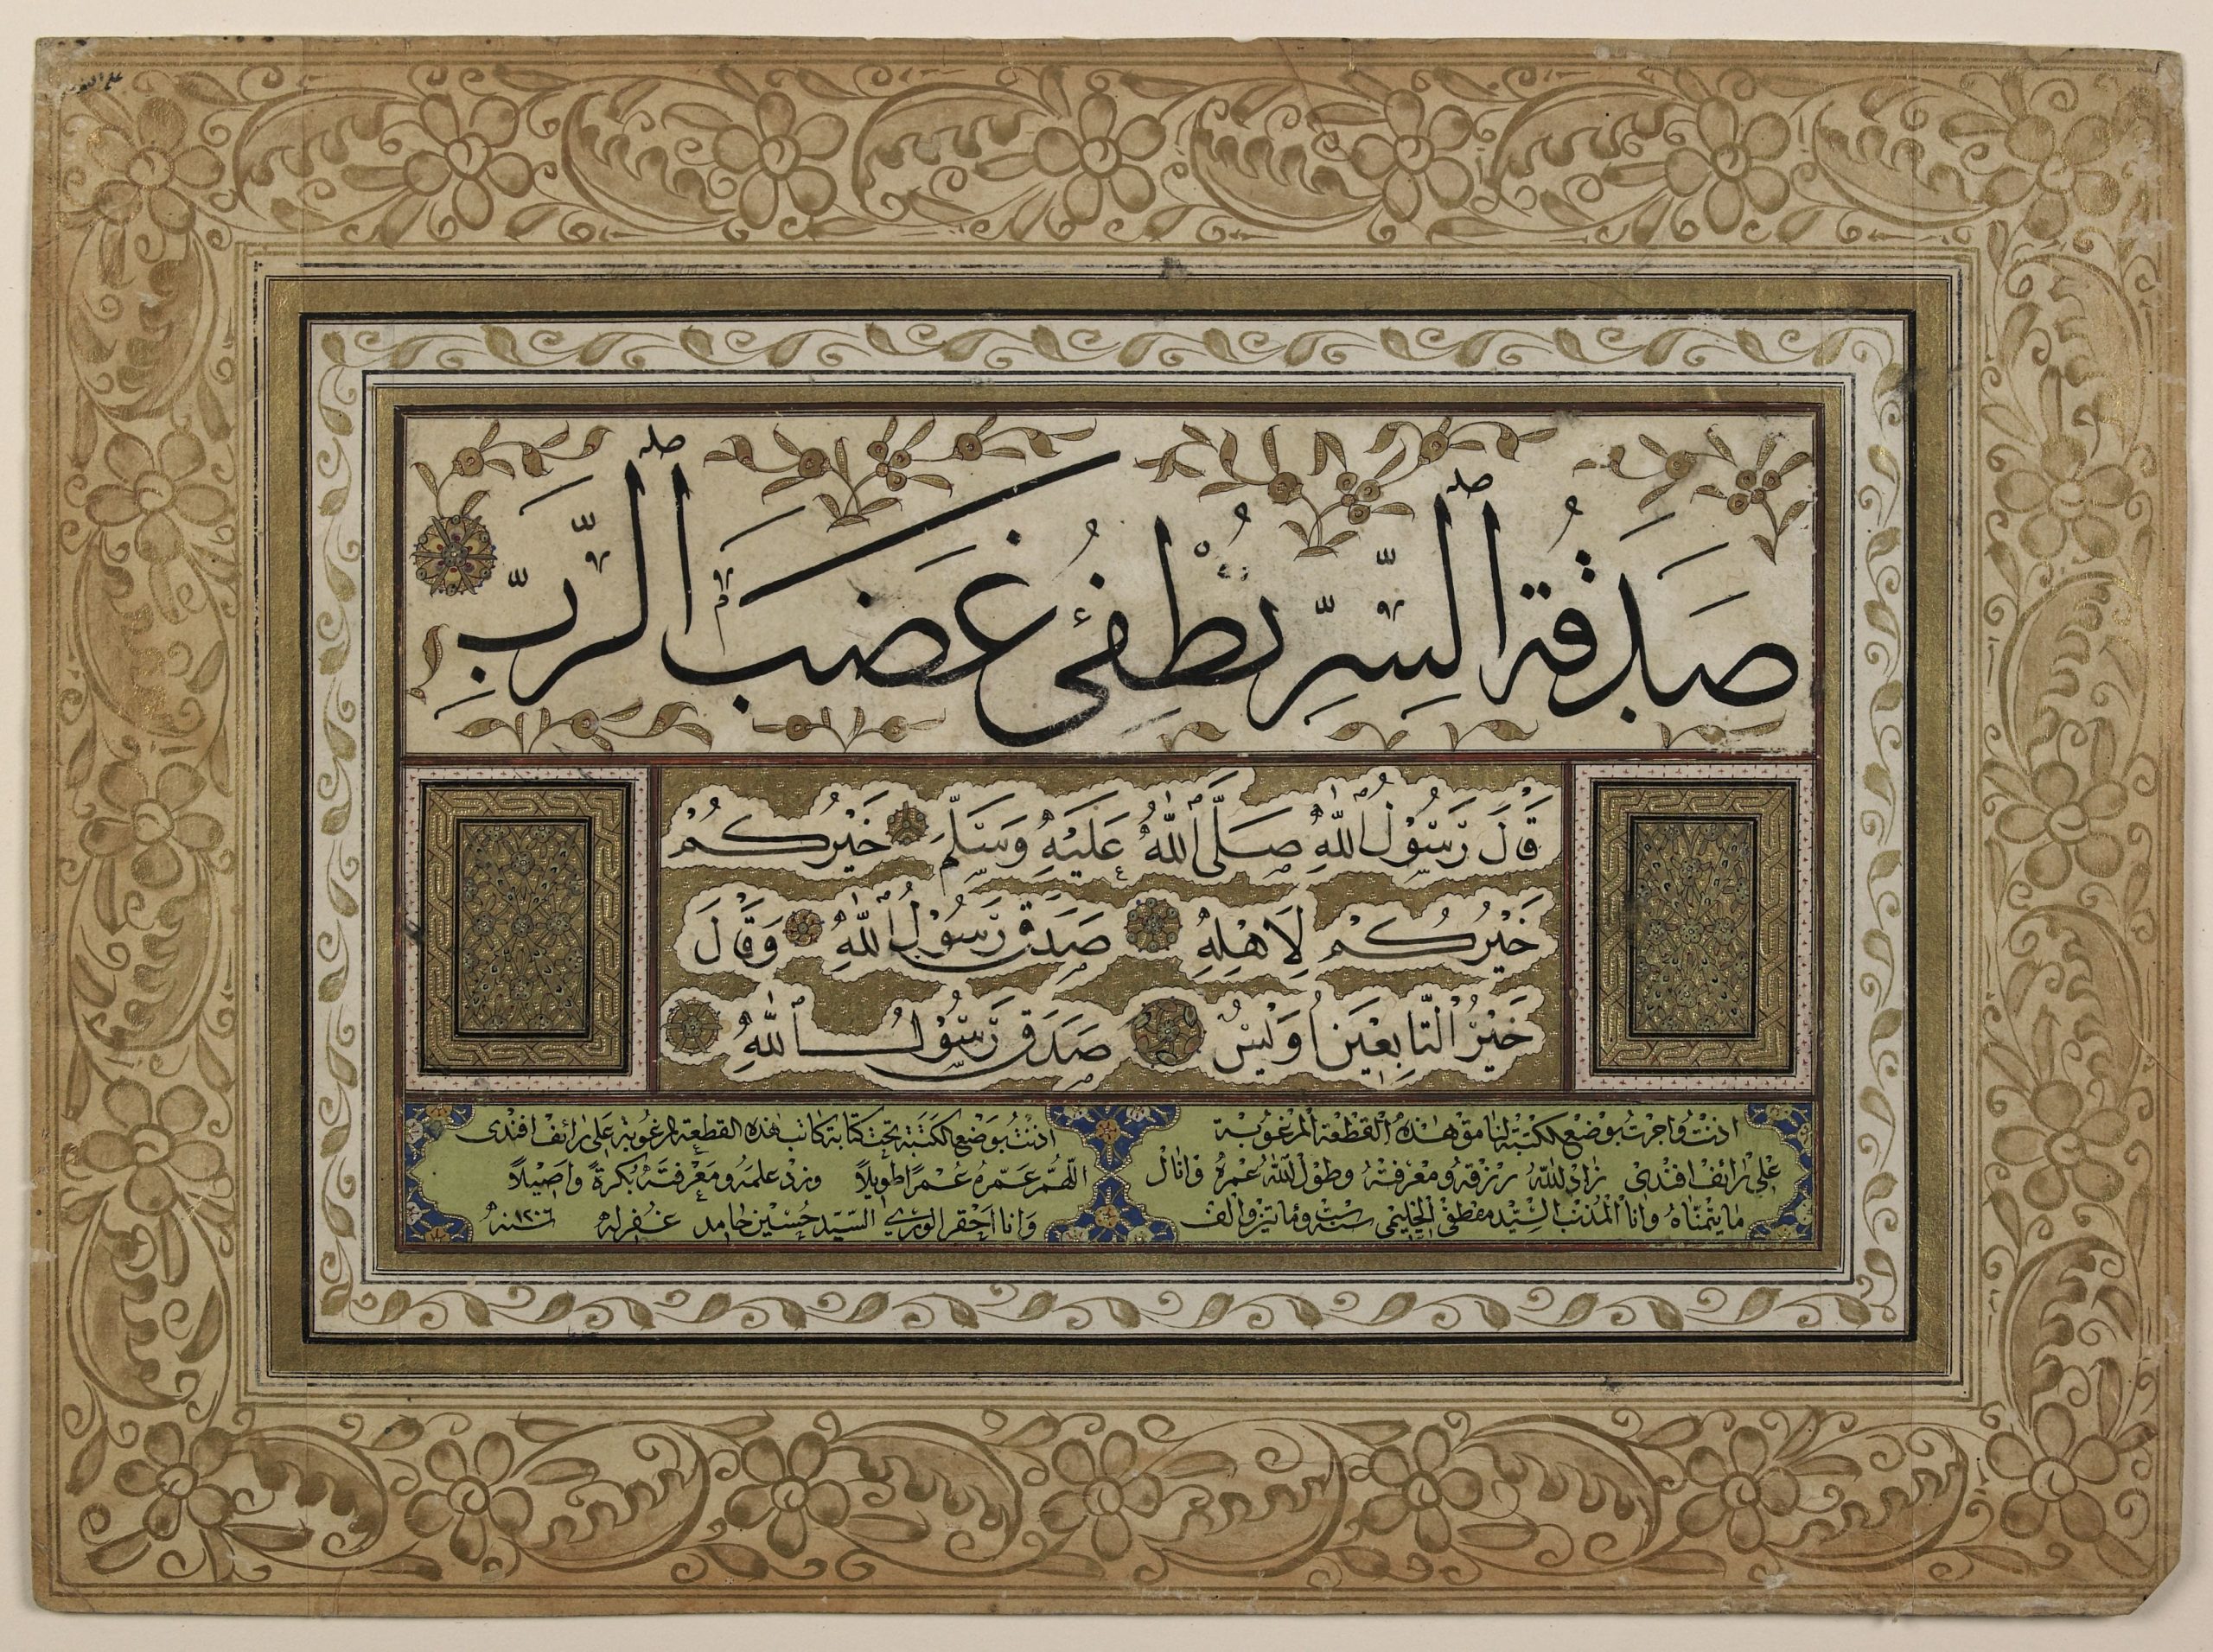 صَدَقَةُ ٱلسِّرِّ تُطْفِئُ غَضَبَ ٱلرَّبِّ
قَالَ رَسُوْلُ ٱللّٰهِ صَلَّى ٱللّٰهُ عَلَيْهِ وَسَلَّمَ خَيْرُكُمْ
خَيْرُكُمْ لِاَهْلِهِ صَدَقَ رَسُوْلُ ٱللّٰهِ وَقَالَ
خَيْرُ التَّابِعِيْنَ اُوَيْسٌ صَدَقَ رَسُوْلُ ٱللّٰهِ
اذنت واجزت بوضع الكتبة لنامق هذه القطعة المرغوبة
على رائف افندى زاد الله رزقه ومعرفته وطول الله عمره وانال
ما يتمناه وانا المذنب السيد مصطفى الحليمى ست ومائتين والف
اذنت بوضع الكتبة تحت كتابة كاتب هذه القطعة المرغوبة على رائف افندى
اللهم عمره عمرا طويلا وزد علمه ومعرفته بكرة واصيلا
وانا احقر الورى السيد حسين حامد غفر له سنه ١٢٠٦